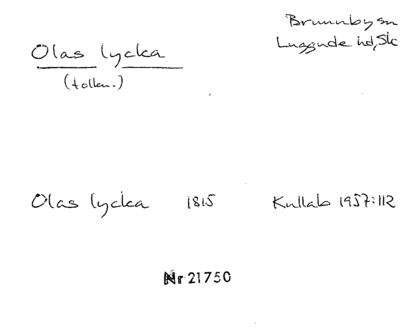 Brunnby sn
Luggude hd, Sk
Olas lycka
(tolkn.)
Olas lycka 1815 Kullab 1957:112
Nr 21750